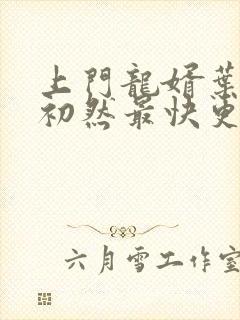 上門龍婿葉
初然最快更
六月雪工作室